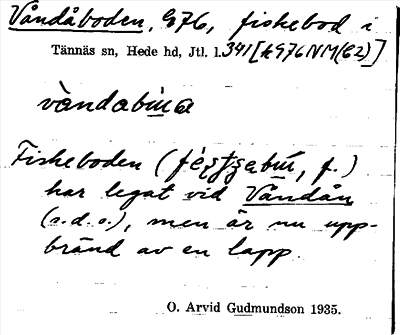 Våndåboden, 976, fiskebod i
Tännäs sn, Hede hd, Jtl. l. 341 [k976NM(62)]
våndabúa
Fiskeboden (f. )
har legat vid Våndån
(s.d.o.), men är nu upp-
bränd av en lapp.
O. Arvid Gudmundson 1935.